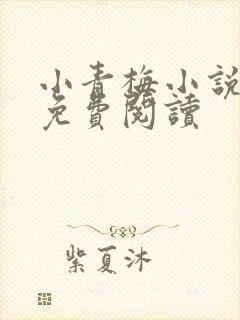 小青梅小說
免費閱讀
紫夏沐